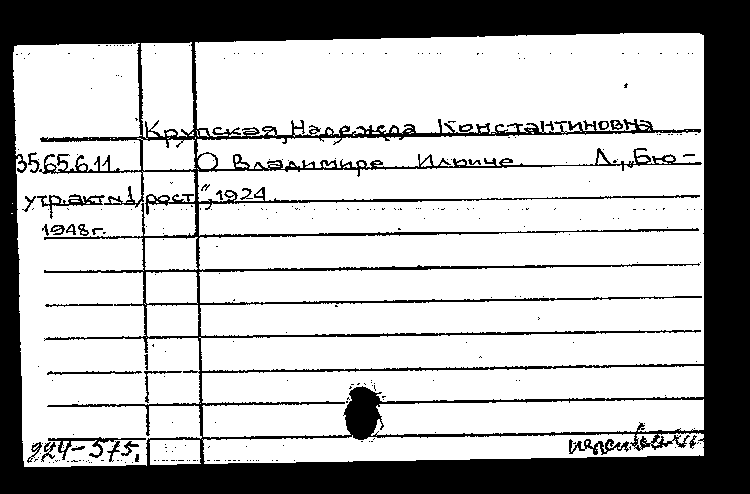 Крупская, Надежда Константиновна
35.65.6.11. О Владимире Ильиче. Л., „Бю-
утр.акт№1 рост“, 1924.
1948г.
924-575.